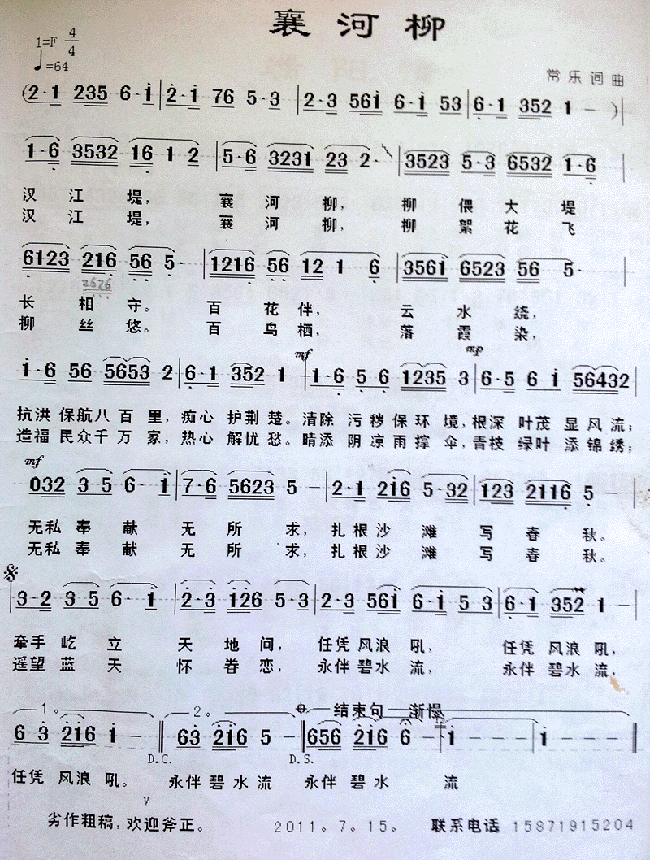 襄河柳
1=F 4/4
♩=64
常乐词曲
(2·1 235 6·i | 2·i 76 5·3 | 2·3 56i 6·i 53 | 6·1 352 1 - )
1·6 3532 16 1 2 | 5·6 3231 23 2· | 3523 5·3 6532 1·6
汉江堤，襄河柳，柳偎大堤
汉江堤，襄河柳，柳絮花飞
6123 216 56 5 | 1216 56 12 1 6 | 3561 6523 56 5·
2626
长相守。百花伴，云水绕，
柳丝悠。百鸟栖，落霞染，
mf mp
i·6 56 5653 2 | 6·1 352 1 | 1·6 5 6 1235 3 | 6·5 6 i 56432
抗洪保航八百里，痴心护荆楚。清除污秽保环境，根深叶茂显风流；
造福民众千万家，热心解忧愁。晴添阴凉雨撑伞，青枝绿叶添锦绣；
mf
032 3 5 6·i | 7·6 5623 5 - | 2·1 216 5·32 | 123 2116 5 -
无私奉献无所求，扎根沙滩写春秋。
无私奉献无所求，扎根沙滩写春秋。
3·2 3 5 6·1 | 2·3 126 5 3 | 2·3 56i 6·i 5 3 | 6·1 352 1 -
牵手屹立天地间，任凭风浪吼，任凭风浪吼，
遥望蓝天怀眷恋，永伴碧水流，永伴碧水流，
1。 2。 结束句 渐慢
6 3 216 i - | 63 216 5 - | 656 216 6 - | 1 - - - | i - - -
D.C. D.S.
任凭风浪吼。永伴碧水流 永伴碧水 流
劣作粗稿，欢迎斧正。 2011。7。15。 联系电话 15871915204